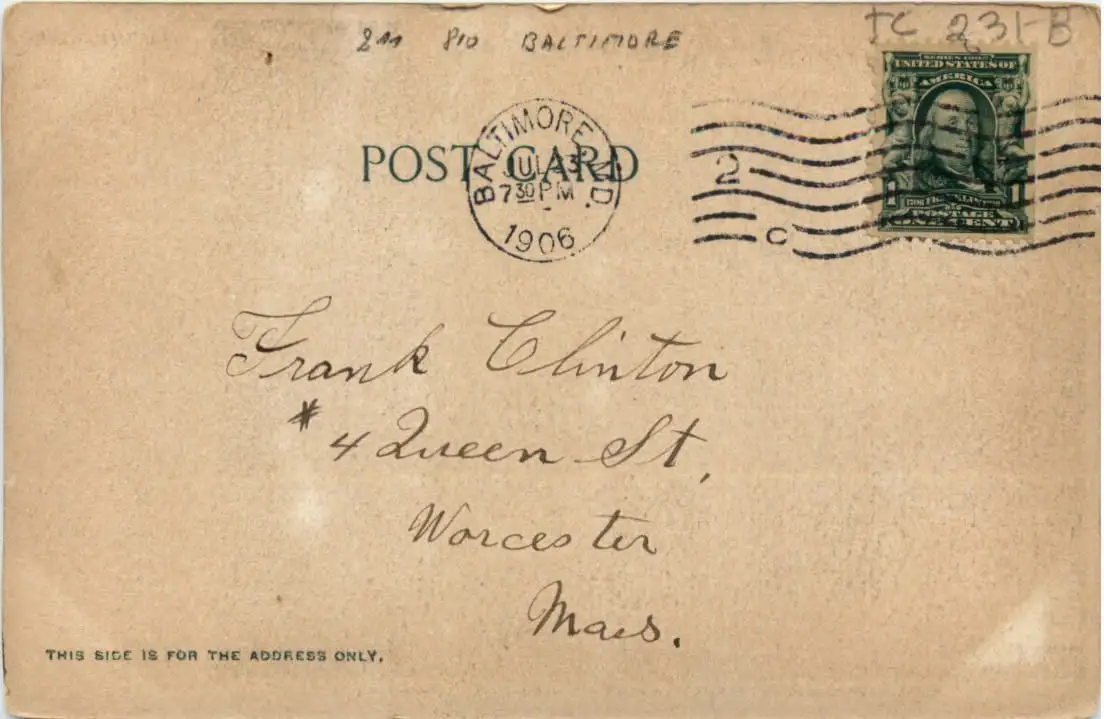 811 810 BALTIMORE
TC 231-B
SERIES 1902
UNITED STATES OF
AMERICA
POST CARD
BALTIMORE, MD.
JUL 3
7 30 PM
1906
2
C
1 1
FRANKLIN
POSTAGE
ONE CENT
Frank Clinton
# 4 Queen St,
Worcester
Mass.
THIS SIDE IS FOR THE ADDRESS ONLY.